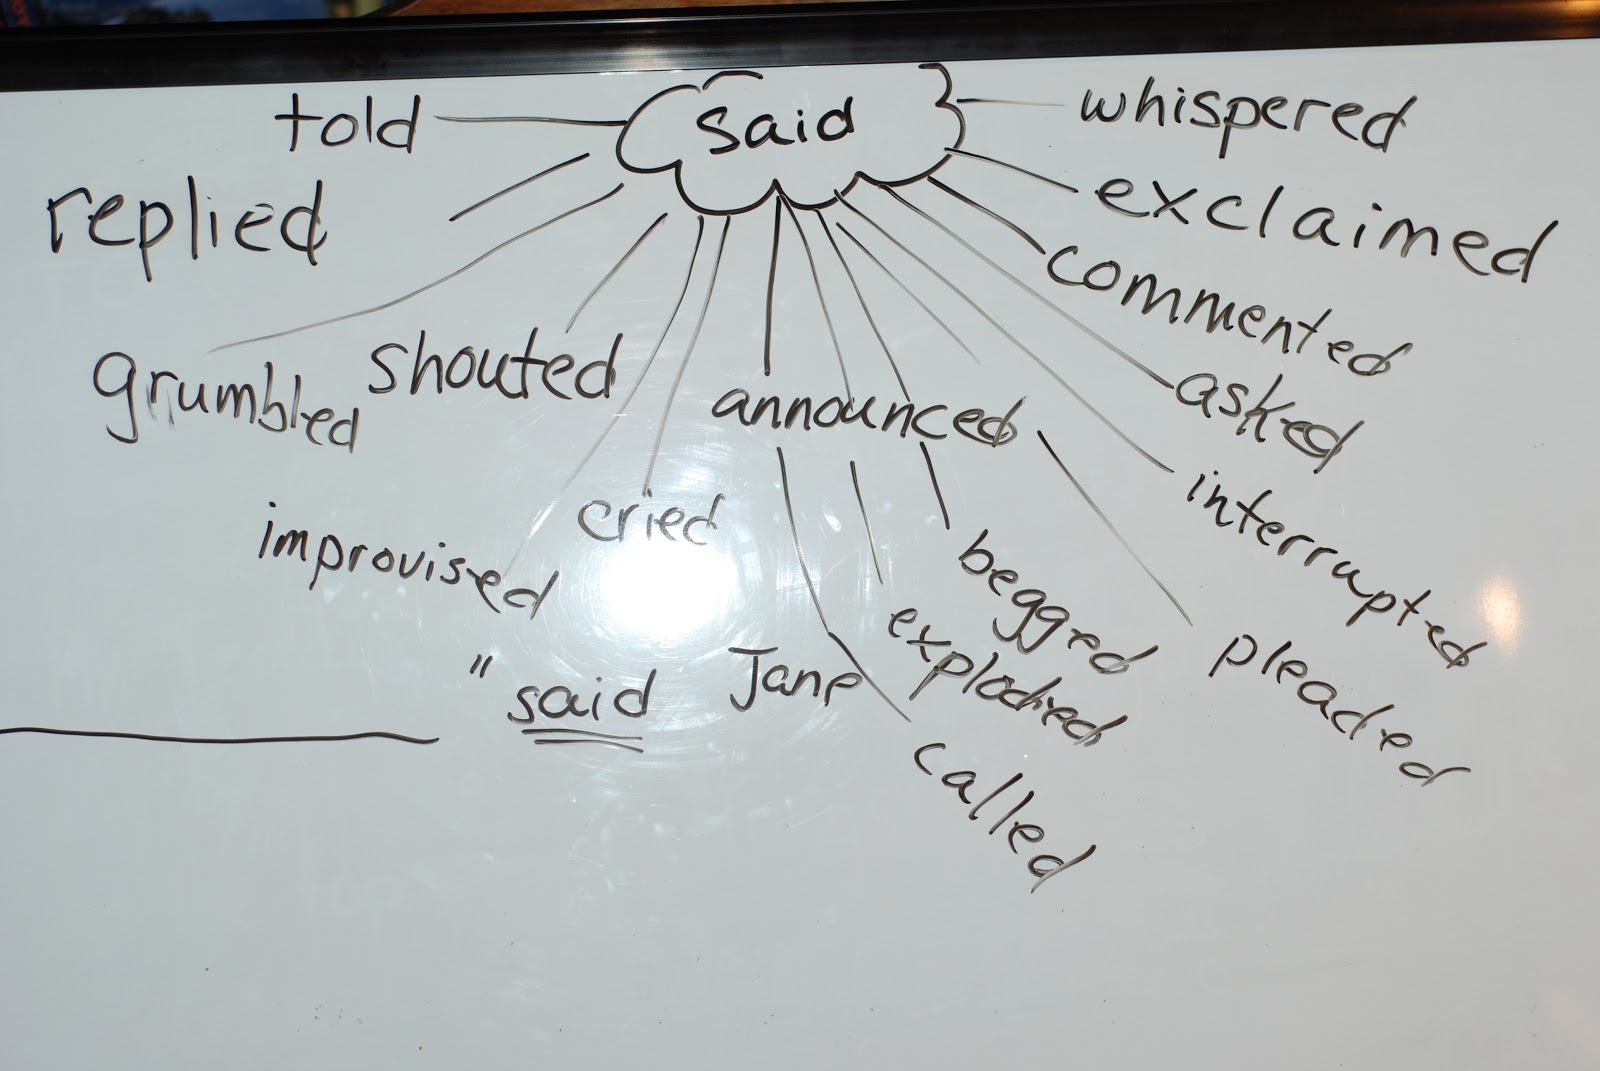 said
told
whispered
replied
exclaimed
commented
grumbled
shouted
announced
asked
improvised
cried
interrupted
begged
exploded
pleaded
" said Jane
called